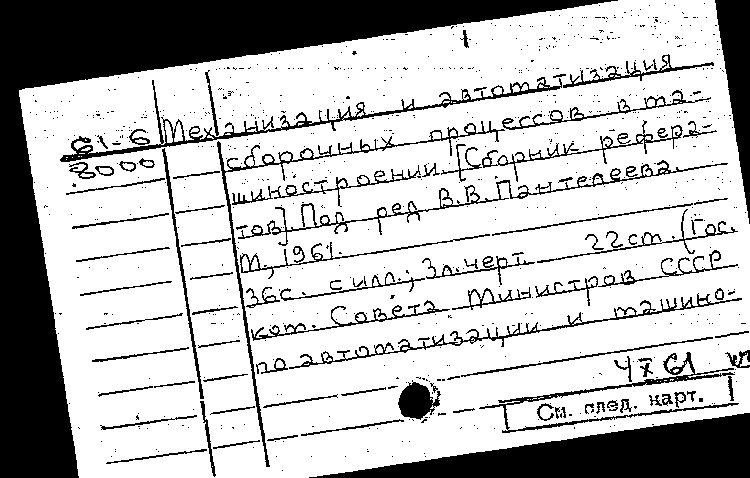 61-6 Механизация и автоматизация
8000 сборочных процессов в ма-
шиностроении. [Сборник рефера-
тов]. Под ред В.В. Пантелеева.
М., 1961.
36с. с илл.; 3л.черт. 22см. (Гос.
ком. Совета Министров СССР
по автоматизации и машино-
4 X 61
См. след. карт.